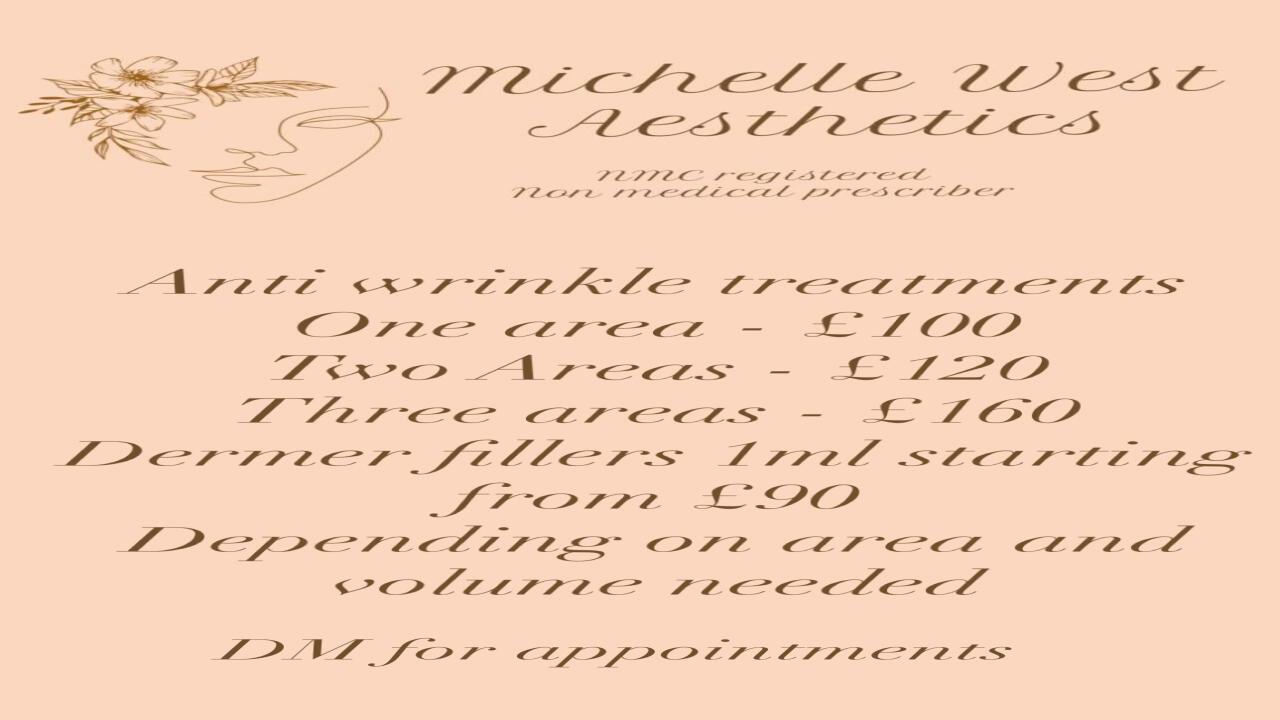 Michelle West
Aesthetics
NMC registered
Non medical prescriber
Anti wrinkle treatments
One area - £100
Two Areas - £120
Three areas - £160
Dermer fillers 1ml starting
from £90
Depending on area and
volume needed
DM for appointments